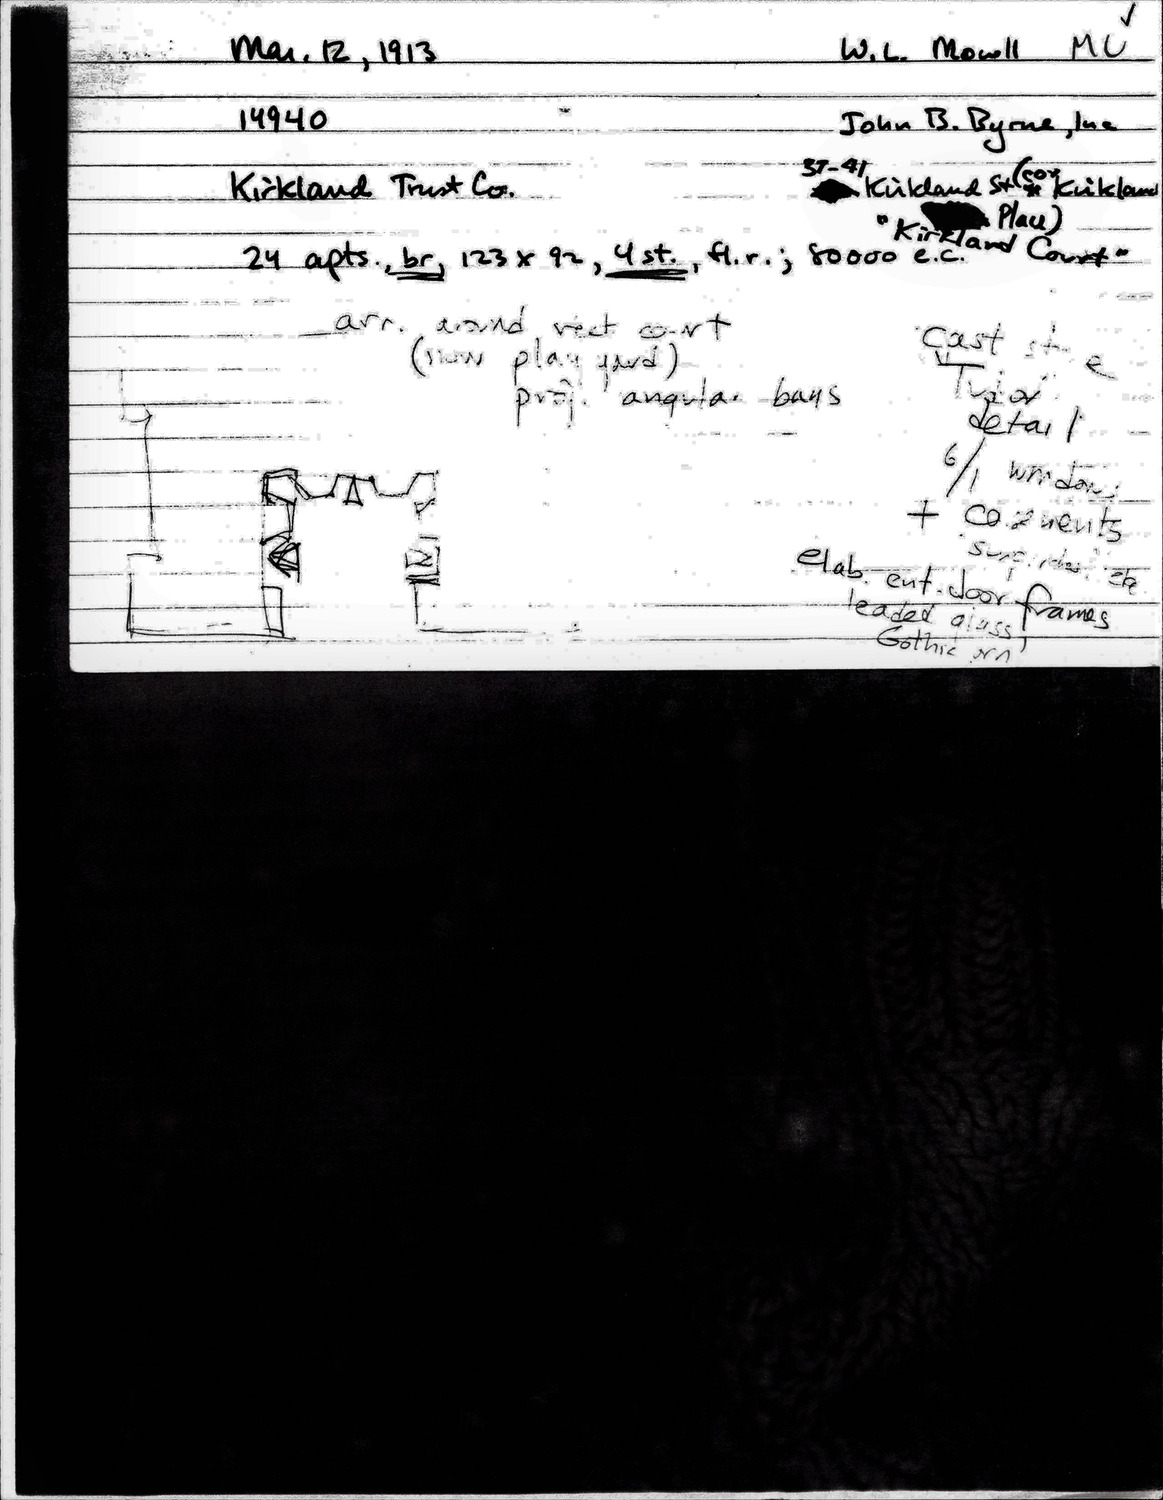 Mar. 12, 1913 W.L. Mowll MC ✓
14940 John B. Byrne, Inc
Kirkland Trust Co. 37-41 Kirkland St (cor Kirkland Place)
"Kirkland Court"
24 apts., br, 123 x 92, 4 st., fl.r.; 80000 e.c.
arr. around rect court
(now play yard)
proj. angular bays
Cast stone
Tudor
detail
6/1 windows
+ casments
etc
elab. ent. door frames
leaded glass,
Gothic orn